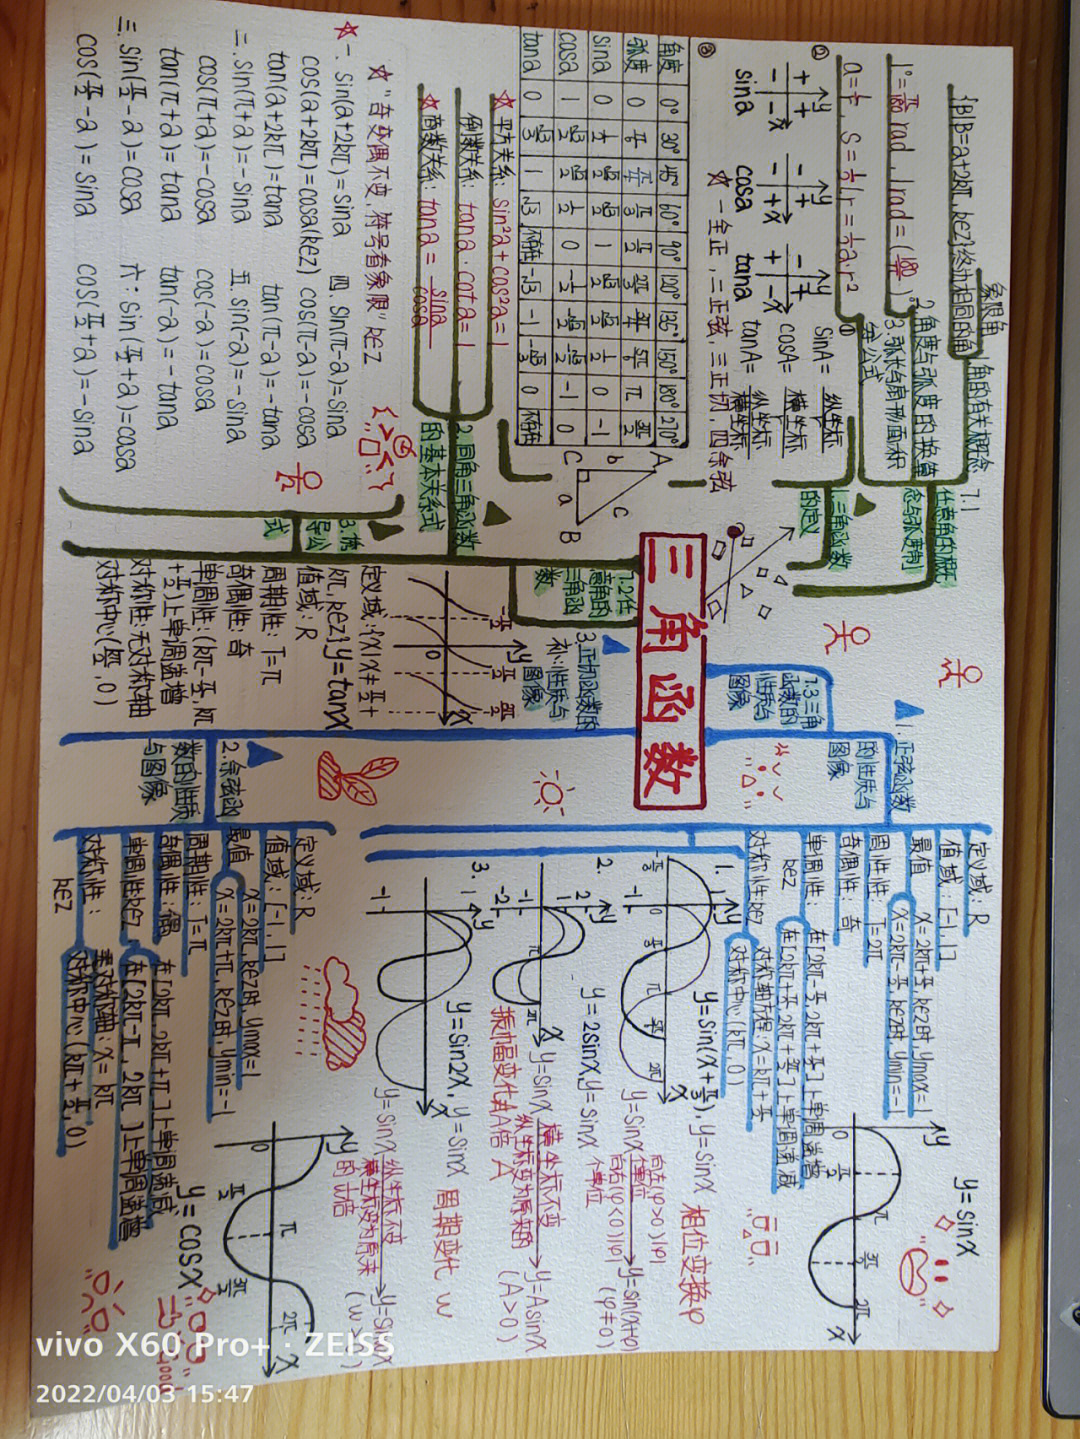 三角函数
7.1
任意角的概
念与弧度制
象限角
1.角的有关概念
{β|β=a+2kπ,k∈z}终边相同的角
2.角度与弧度的换算
1°=π/180 rad, 1rad=(180/π)°
3.弧长与扇形面积
公式
S=1/2 lr=1/2 a·r²
7.2任
意角的
三角函
数
1.三角函数
的定义
①
sinA=纵坐标
cosA=横坐标
tanA=纵坐标/横坐标
②
sina cosa tana
☆ 一全正,二正弦,三正切,四余弦
③
角度 0° 30° 45° 60° 90° 120° 135° 150° 180° 270°
弧度 0 π/6 π/4 π/3 π/2 2π/3 3π/4 5π/6 π 3π/2
sina 0 1/2 √2/2 √3/2 1 √3/2 √2/2 1/2 0 -1
cosa 1 √3/2 √2/2 1/2 0 -1/2 -√2/2 -√3/2 -1 0
tana 0 √3/3 1 √3 不存在 -√3 -1 -√3/3 0 不存在
A
b
c
C
a
B
2.同角三角函数
的基本关系式
☆平方关系: sin²a+cos²a=1
倒数关系: tana·cota=1
☆商数关系: tana=sina/cosa
式
☆ "奇变偶不变,符号看象限" k∈z
☆一. sin(a+2kπ)=sina
cos(a+2kπ)=cosa(k∈z)
tan(a+2kπ)=tana
二. sin(π+a)=-sina
cos(π+a)=-cosa
tan(π+a)=tana
三. sin(π/2-a)=cosa
cos(π/2-a)=sina
四. sin(π-a)=sina
cos(π-a)=-cosa
tan(π-a)=-tana
五. sin(-a)=-sina
cos(-a)=cosa
tan(-a)=-tana
六. sin(π/2+a)=cosa
cos(π/2+a)=-sina
7.3三角
函数的
性质与
图象
1.正弦函数
的性质与
图象
定义域:R
值域:[-1,1]
最值
x=2kπ+π/2,k∈z时,ymax=1
x=2kπ-π/2,k∈z时,ymin=-1
周期性: T=2π
奇偶性: 奇
单调性:
k∈z
在[2kπ-π/2,2kπ+π/2]上单调递增
在[2kπ+π/2,2kπ+3π/2]上单调递减
对称性k∈z
对称轴方程:x=kπ+π/2
对称中心(kπ,0)
y=sinx
1.
y=sin(x+π/3),y=sinx 相位变换φ
2.
y=2sinx,y=sinx
振幅变化A
y=sinx
横坐标不变
纵坐标变为原来的
A倍
y=Asinx
(A>0)
3.
y=sin2x,y=sinx 周期变化 w
y=sinx
纵坐标不变
2.余弦函
数的性质
与图象
定义域:R
值域:[-1,1]
最值
x=2kπ,k∈z时,ymax=1
x=2kπ+π,k∈z时,ymin=-1
周期性: T=π
奇偶性:偶
单调性k∈z
在[2kπ,2kπ+π]上单调递减
在[2kπ-π,2kπ]上单调递增
对称性:
k∈z
对称轴:x=kπ
对称中心(kπ+π/2,0)
y=cosx
3.正切函数的
补:性质与
图象
定义域:{x|x≠π/2+
kπ,k∈z} y=tanx
值域: R
周期性: T=π
奇偶性: 奇
单调性:(kπ-π/2,kπ
+π/2)上单调递增
对称性:无对称轴
对称中心(kπ/2,0)
vivo X60 Pro+ · ZEISS
2022/04/03 15:47